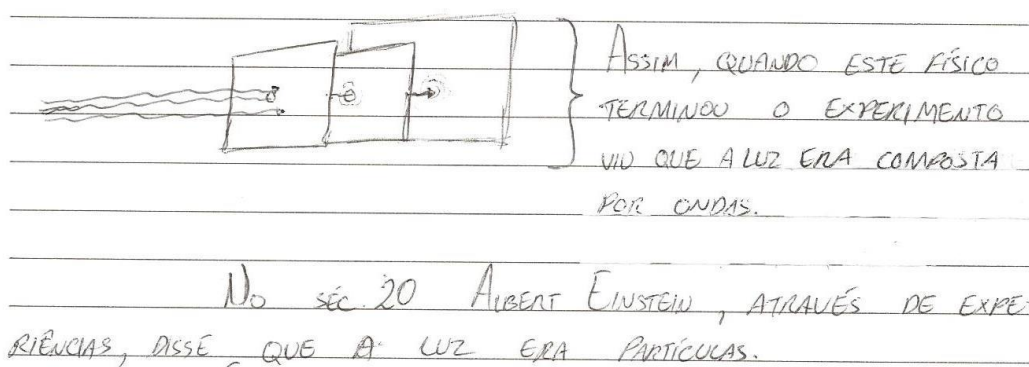 ASSIM, QUANDO ESTE FÍSICO
TERMINOU O EXPERIMENTO
VIU QUE A LUZ ERA COMPOSTA
POR ONDAS.
NO SÉC. 20 ALBERT EINSTEIN, ATRAVÉS DE EXPE-
RIÊNCIAS, DISSE QUE A LUZ ERA PARTÍCULAS.